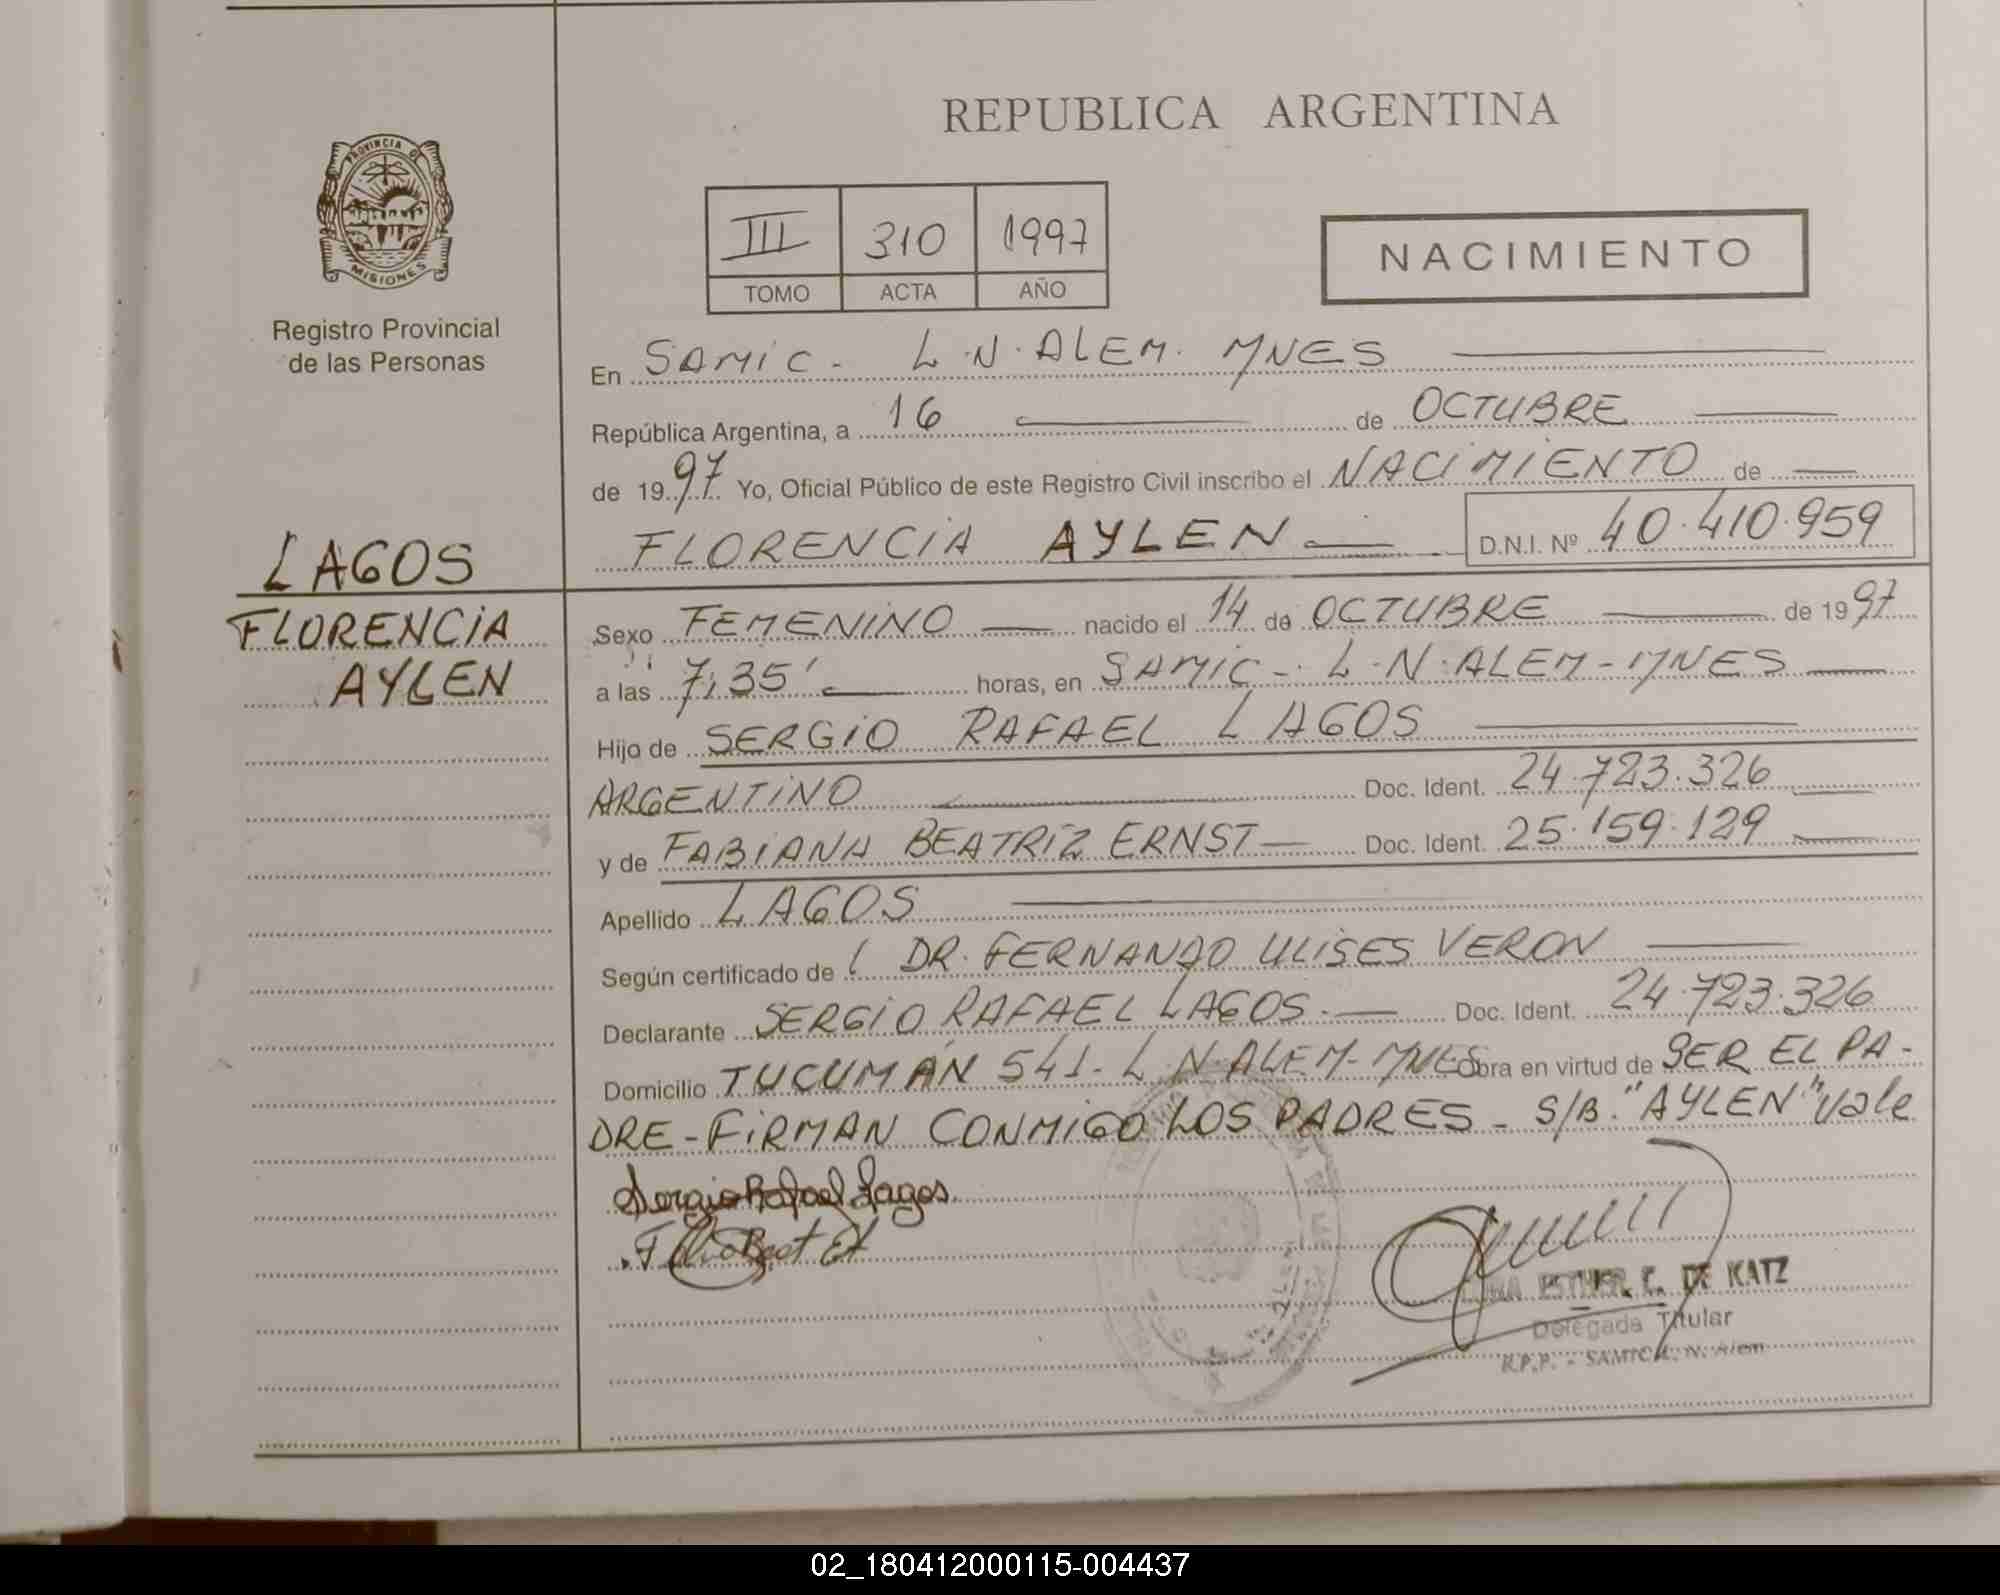 REPUBLICA ARGENTINA
PROVINCIA DE
MISIONES
Registro Provincial
de las Personas
III 310 1997
TOMO ACTA AÑO
NACIMIENTO
En SAMIC - L.N. ALEM. MNES
República Argentina, a 16 de OCTUBRE
de 1997 Yo, Oficial Público de este Registro Civil inscribo el NACIMIENTO de
FLORENCIA AYLEN D.N.I. Nº 40.410.959
LAGOS
FLORENCIA
AYLEN
Sexo FEMENINO nacido el 14 de OCTUBRE de 1997
a las 7,35' horas, en SAMIC - L.N. ALEM - MNES
Hijo de SERGIO RAFAEL LAGOS
ARGENTINO Doc. Ident. 24.723.326
y de FABIANA BEATRIZ ERNST Doc. Ident. 25.159.129
Apellido LAGOS
Según certificado de DR. FERNANDO ULISES VERON
Declarante SERGIO RAFAEL LAGOS. Doc. Ident. 24.723.326
Domicilio TUCUMÁN 541 - L.N. ALEM - MNES Obra en virtud de SER EL PA-
DRE - FIRMAN CONMIGO LOS PADRES - S/B. "AYLEN" vale
Sergio Rafael Lagos
ESTHER C. DE KATZ
Delegada Titular
R.P.P. - SAMIC L. N. Alem
02_180412000115-004437